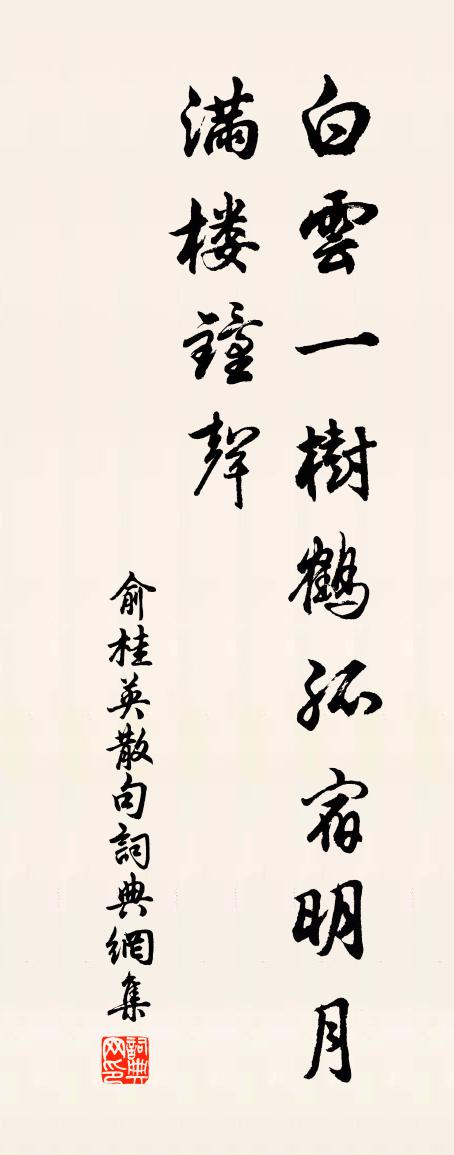 白雲一樹鶴孤宿明月
滿楼鐘聲
俞桂英散句詞典網集
詞典网印